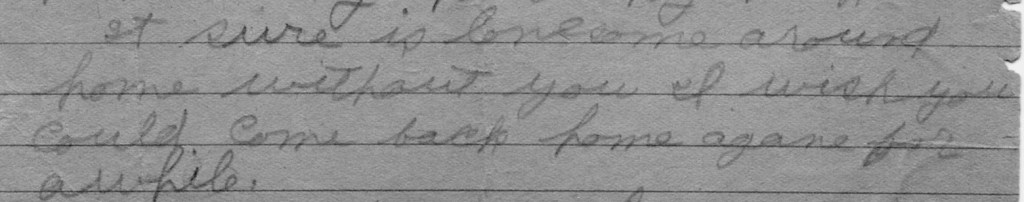 It sure is lonesome around
home without you I wish you
could. Come back home agane for
awhile.